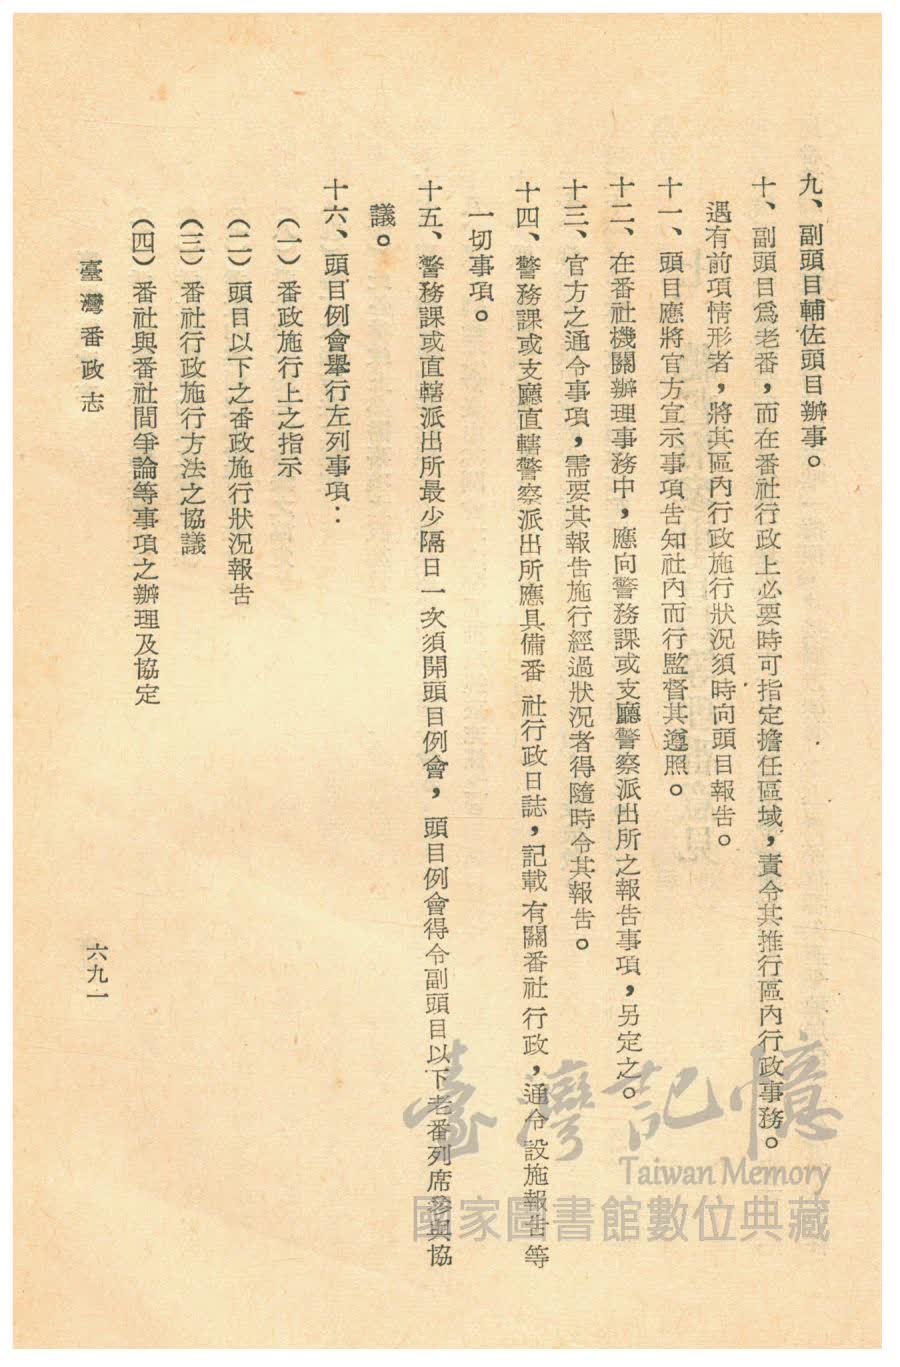 九、副頭目輔佐頭目辦事。
十、副頭目爲老番，而在番社行政上必要時可指定擔任區域，責令其推行區內行政事務。
遇有前項情形者，將其區內行政施行狀況須時向頭目報告。
十一、頭目應將官方宣示事項告知社內而行監督其遵照。
十二、在番社機關辦理事務中，應向警務課或支廳警察派出所之報告事項，另定之。
十三、官方之通令事項，需要其報告施行經過狀況者得隨時令其報告。
十四、警務課或支廳直轄警察派出所應具備番社行政日誌，記載有關番社行政，通令設施報告等
一切事項。
十五、警務課或直轄派出所最少隔日一次須開頭目例會，頭目例會得令副頭目以下老番列席參與協
議。
十六、頭目例會舉行左列事項：
（一）番政施行上之指示
（二）頭目以下之番政施行狀況報告
（三）番社行政施行方法之協議
（四）番社與番社間爭論等事項之辦理及協定
臺灣番政志
六九一
臺灣記憶
Taiwan Memory
國家圖書館數位典藏